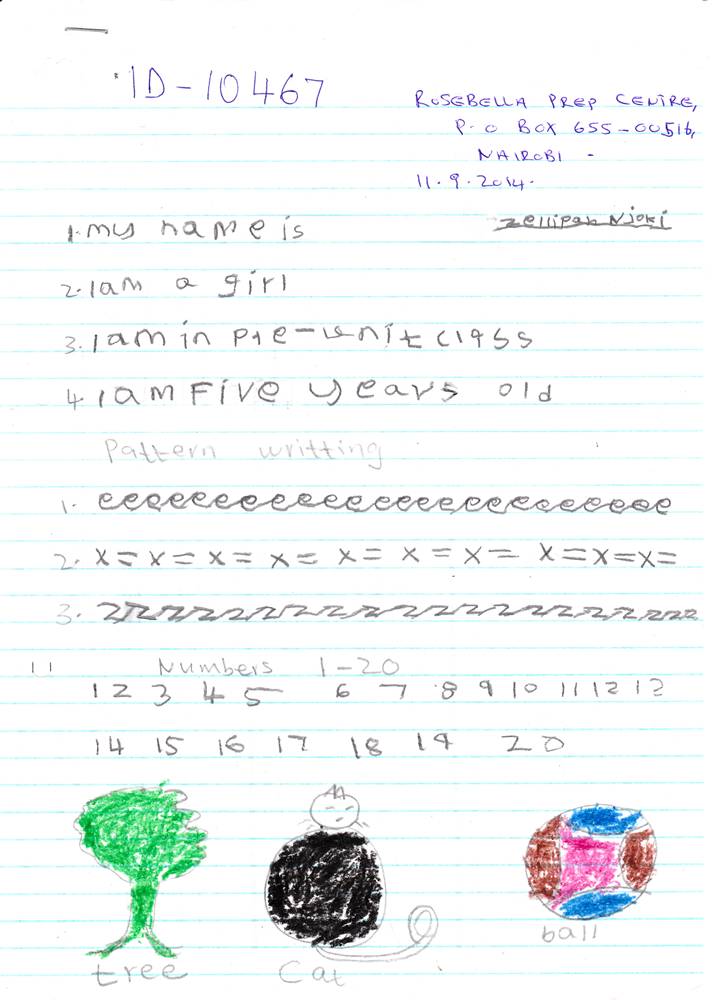 ID-10467
ROSEBELLA PREP CENTRE,
P.O BOX 655-00516,
NAIROBI -
11.9.2014.
1. my name is Zellipah Njoki
2. I am a girl
3. I am in pre-unit class
4. I am Five years old
Pattern writting
1. eeeeeeeeeeeeeeeeeeeeeeee
2. x = x = x = x = x = x = x = x = x = x =
3. zzzzzzzzzzzzzzzzzzzz
11 Numbers 1-20
1 2 3 4 5 6 7 8 9 10 11 12 12
14 15 16 17 18 19 20
tree Cat ball